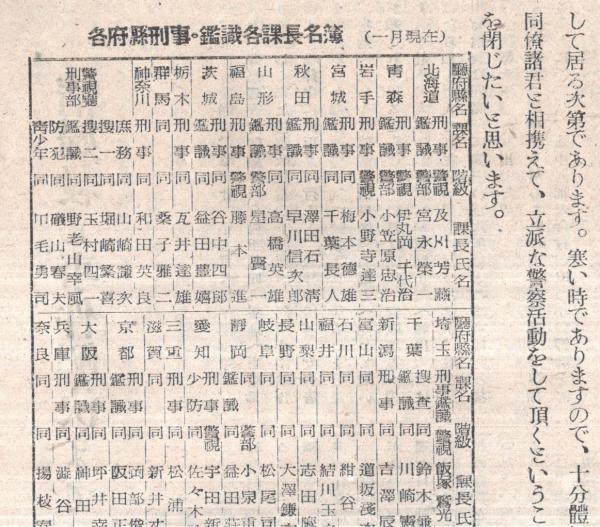 して居る次第であります。寒い時でありますので、十分體
同僚諸君と相携えて、立派な警察活動をして頂くというこ
を閉じたいと思います。
各府縣刑事・鑑識各課長名簿 (一月現在)
廳府縣名 課名 階級 課長氏名
北海道 刑事 警視 及川芳藏
鑑識 警部 宮永榮一
青森 刑事 警視 伊丸岡千代治
鑑識 警部 小笠原忠治
岩手 刑事 警視 小野寺達三
宮城 刑事 同 梅本德雄
鑑識 同 千葉長人
秋田 刑事 同 澤田石清
鑑識 同 早川信次郎
山形 刑事 同 高橋英雄
鑑識 警部 星賢一
福島 刑事 警視 藤本進
茨城 刑事 同 谷中四郎
鑑識 同 益田豊
栃木 刑事 同 瓦井達雄
群馬 同 同 桑子雅二
神奈川 刑事 同 和田英良
警視廳刑事部 庶務 同 山崎謙次
搜一 同 堀崎繁喜
搜二 同 玉村四一
鑑識 同 野老山幸風
防犯 同 磯山春夫
靑少年 同 川毛勇司
廳府縣名 課名 階級 課長氏
埼玉 刑事鑑識 警視 飯塚
千葉 搜査 同 鈴木
鑑識 同 川崎
新潟 刑事 同 吉澤辰
富山 同 同 道坂淺
石川 同 同 紺谷
福井 同 同 結川玉
山梨 同 同 志田
長野 同 同 大澤鎌
岐阜 同 同 松尾
靜岡 同 同 小泉
鑑識 警部 益田莊
愛知 刑事 警視 宇田新
少防 同 佐々木
三重 刑事 同 松浦
滋賀 同 同 新井
京都 刑事 同 岡部俊
鑑識 同 阪田正
大阪 刑事 同 坪井幸
鑑識 同 神田
兵庫 刑事 同 澁谷
奈良 同 同 揚枝